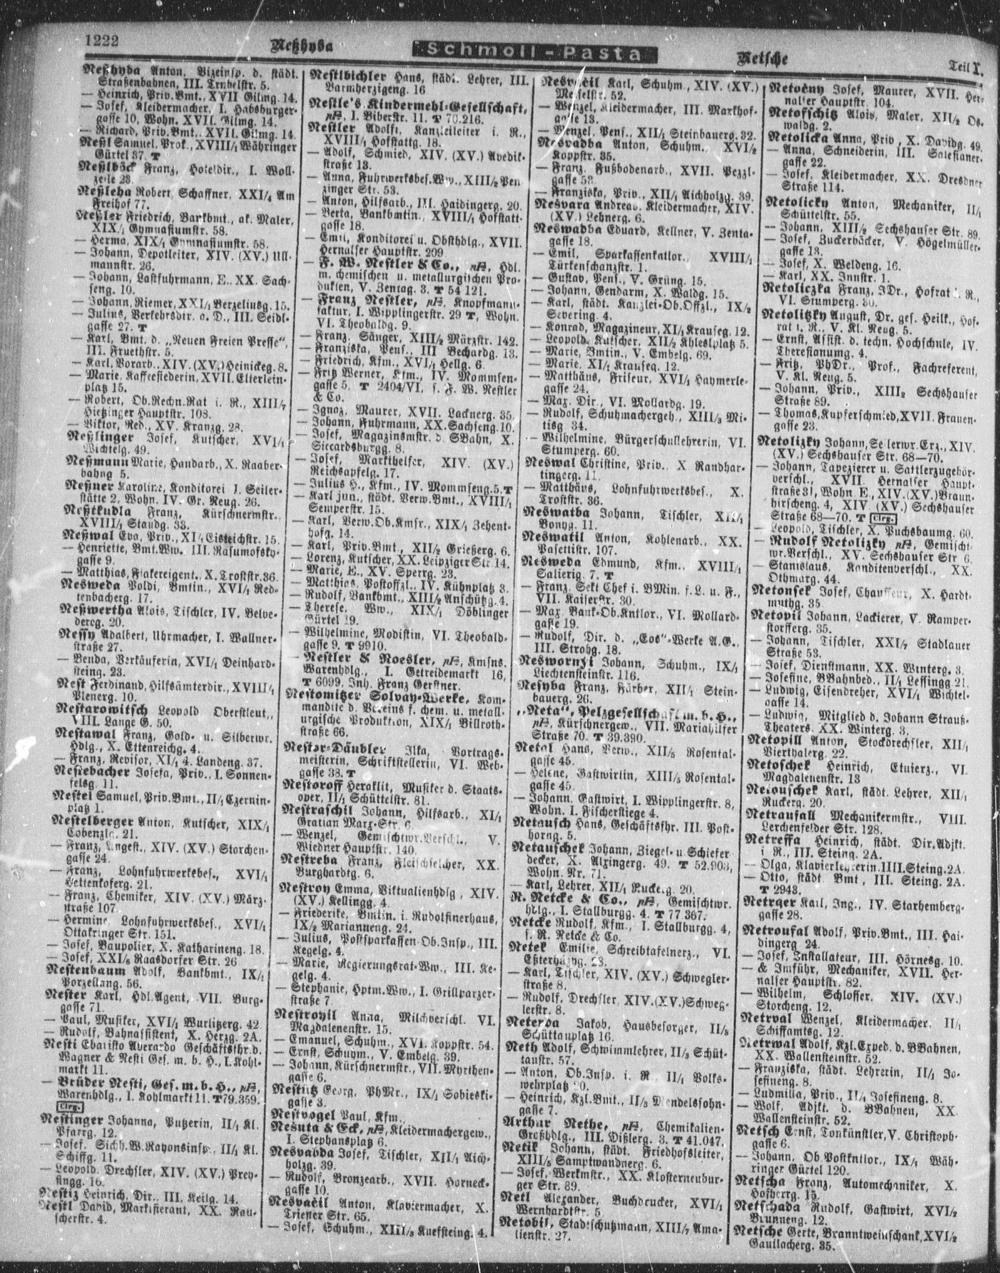 1222
Neßhyba
Schmoll-Pasta
Netsche
Teil I.
Neßhyba Anton, Vizeinsp. d. städt.
Straßenbahnen, III. Trubelstr. 5.
— Heinrich, Priv.Bmt., XVII Gilmg. 14.
— Josef, Kleidermacher, I. Habsburger-
gasse 10, Wohn. XVII. Gilmg. 14.
— Richard, Priv.Bmt., XVII. Gilmg. 14.
Neßl Samuel, Prok., XVIII/1 Währinger
Gürtel 37. T
Neßlböck Franz, Hoteldir., I. Woll-
zeile 23.
Neßleha Robert, Schaffner, XXI/4 Am
Freihof 77.
Neßler Friedrich, Barkbmt., ak. Maler,
XIX/1 Gymnasiumstr. 58.
— Herma, XIX/1 Gymnasiumstr. 58.
— Johann, Depotleiter, XIV. (XV.) Ull-
mannstr. 26.
— Johann, Lastfuhrmann, E. XX. Sach-
seng. 10.
— Johann, Riemer, XXI/1 Berzeliusg. 15.
— Julius, Verkehrsdir. a. D., III. Seidl-
gasse 27. T
— Karl, Bmt. d. „Neuen Freien Presse“,
III. Fruethstr. 5.
— Karl, Vorarb., XIV. (XV.) Heinickeg. 8.
— Marie, Kaffeesiederin, XVII. Elterlein-
platz 15.
— Robert, Ob.Rechn.Rat i. R., XIII/7
Hietzinger Hauptstr. 108.
— Viktor, Red., XV. Kranzg. 28.
Neßlinger Josef, Kutscher, XVI/1
Wichtelg. 49.
Neßmann Marie, Handarb., X. Raaber-
bahng 5.
Neßner Karoline, Konditorei I. Seiler-
stätte 2, Wohn. IV. Gr. Neug. 26.
Neßtkudla Franz, Kürschnermstr.,
XVIII/1 Staudg. 33.
Neßwal Eva, Priv., XI/1 Geiseichstr. 15.
— Henriette, Bmt.Ww., III. Rasumofsky-
gasse 9.
— Matthias, Fiakereigent., X. Troststr. 36.
Nesweda Poldi, Bmtin., XVI/1 Red-
tenbacherg. 17.
Neßwertha Alois, Tischler, IV. Belve-
dereg. 20.
Nessy Adalbert, Uhrmacher, I. Wallner-
straße 27.
— Benda, Verkäuferin, XVI/1 Deinhard-
steing. 23.
Nest Ferdinand, Hilfsämterdir., XVIII/1
Plenerg. 10.
Nestarowitsch Leopold Oberstleut.,
VIII. Lange G. 50.
Nestawal Franz, Gold- u. Silberwr.
Hdlg., X. Ettenreichg. 4.
— Franz, Revisor, XI/1 4. Landeng. 37.
Nestebacher Josefa, Priv., I. Sonnen-
felsg. 11.
Nestel Samuel, Priv.Bmt., II/1 Czernin-
platz 1.
Nestelberger Anton, Kutscher, XIX/1
Cobenzlg. 21.
— Franz, Angest., XIV. (XV.) Storchen-
gasse 24.
— Franz, Lohnfuhrwerksbes., XVI/1
Pettenkoferg. 21.
— Franz, Chemiker, XIV. (XV.) März-
straße 107.
— Hermine, Lohnfuhrwerksbes., XVI/1
Ottakringer Str. 151.
— Josef, Baupolier, X. Katharineng. 18.
— Josef, XXI/2 Raasdorfer Str. 26
Nestenbaum Adolf, Bankbmt., IX/1
Porzellang. 56.
Nester Karl, Hdl.Agent, VII. Burg-
gasse 71.
— Paul, Musiker, XVI/1 Wurlitzerg. 42.
— Rudolf, Bahnassistent, X. Herzg. 2A.
Nesti Evaristo Averardo Geschäftshr. d.
Wagner & Nesti Ges. m. b. H., I. Kohl-
markt 11.
— Brüder Nesti, Ges. m. b. H.,
Warenhdlg., I. Kohlmarkt 11. T 79.359.
Clrg.
Nestinger Johanna, Putzerin, II/1 Kl.
Pfarrg. 12.
— Josef, Sich.W.Rayonsinsp., II/1 Kl.
Schiffg. 11.
— Leopold, Drechsler, XIV. (XV.) Prey-
singg. 16.
Nestiz Heinrich, Dir., III. Keilg. 14.
Nestl David, Marktfierant, XX. Rau-
scherstr. 4.
Nestlbichler Hans, städt. Lehrer, III.
Barmherzigeng. 16
Nestle's Kindermehl-Gesellschaft,
I. Biberstr. 11. T 70.216.
Nestler Adolfi, Kanzleileiter i. R.,
XVIII/1 Hofstattg. 18.
— Adolf, Schmied, XIV. (XV.) Avedik-
straße 13.
— Anna, Fuhrwerksbes.Ww., XIII/2 Pen-
zinger Str. 53.
— Anton, Hilfsarb., III. Haidingerg. 20.
— Berta, Bankbmtin., XVIII/1 Hofstatt-
gasse 18.
— Emil, Konditorei u. Obsthdlg., XVII.
Hernalser Hauptstr. 209
— F. W. Nestler & Co., Hdl.
m. chemischen u. metallurgischen Pro-
dukten, V. Zentag. 3. T 54 121.
— Franz Nestler, Knopfmanu-
faktur, I. Wipplingerstr. 29 T, Wohn.
VI. Theobaldg. 9.
— Franz, Sänger, XIII/2 Märzstr. 142.
— Franziska, Pens., III Bechardg. 13.
— Friedrich, Kfm., XVI/1 Hellg. 6.
— Fritz Werner, Kfm., IV. Mommsen-
gasse 5. T 2404/VI. s. F. W. Nestler
& Co.
— Ignaz, Maurer, XVII. Lacknerg. 35.
— Johann, Fuhrmann, XX. Sachseng. 10.
— Josef, Magazinsmstr. d. SBahn, X.
Siccardsburgg. 8.
— Josef, Markthelfer, XIV. (XV.)
Reichsapfelg. 17.
— Julius H., Kfm., IV. Mommseng. 5. T
— Karl jun., städt. Verw.Bmt., XVIII/1
Semperstr. 15.
— Karl, Verw.Ob.Kmsr., XIX/1 Zehent-
hofg. 14.
— Karl, Priv.Bmt., XII/2 Grießerg. 6.
— Lorenz, Kutscher, XX. Leipziger Str. 14.
— Marie, E., XV. Sperrg. 23.
— Matthias, Postoffzl., IV. Kühnplatz 3.
— Rudolf, Bankbmt., XIII/2 Anschützg. 4.
— Therese, Ww., XIX/1 Döblinger
Gürtel 19.
— Wilhelmine, Modistin, VI. Theobald-
gasse 9. T 9910.
— Nestler & Noesler, Kmsns.
Warenhdlg., I. Getreidemarkt 16,
T 6099, Inh. Franz Gerstner.
Nestomitzer Solvay-Werke, Kom-
mandite d. Vereins f. chem. u. metall-
urgische Produktion, XIX/1 Billroth-
straße 66.
Nestor-Däubler Ilka, Vortrags-
meisterin, Schriftstellerin, VI. Web-
gasse 38. T
Nestoroff Heraklit, Musiker d. Staats-
oper, II/1 Schüttelstr. 81.
Nestraschil Johann, Hilfsarb., XI/1
Gratian Marx-Str. 6.
— Wenzel, Gemischtwr.Verschl., V.
Wiedner Hauptstr. 140.
Nestreba Franz, Fleischselcher, XX.
Burghardtg. 6.
Nestroy Emma, Viktualienhdlg., XIV.
(XV.) Kellingg. 4.
— Friederike, Bmtin. i. Rudolfinerhaus,
IX/2 Mariannneng. 24.
— Julius, Postsparkassen-Ob.Insp., III.
Kegelg. 4.
— Marie, Regierungsrat-Ww., III. Ke-
gelg. 4.
— Stephanie, Hptm.Ww., I. Grillparzer-
straße 7.
Nestroyil Anna, Milchverschl. VI.
Magdalenenstr. 15.
— Emanuel, Schuhm., XVI. Koppstr. 54.
— Ernst, Schuhm., V. Embelg. 39.
— Johann, Kürschnermstr., VII. Myrthen-
gasse 6.
Nestitz Georg, PhMr., IX/1 Sobieski-
gasse 3.
Nestvogel Paul, Kfm.,
Nesuta & Eck, Kleidermachergew.,
I. Stephansplatz 6.
Nesvadba Josef, Tischler, XII/1 Aich-
holzg. 39.
— Rudolf, Bronzearb., XVII. Horneck-
gasse 10.
Nesvacil Anton, Klaviermacher, X.
Triester Str. 65.
— Josef, Schuhm., XIII/3 Kuefsteing. 4.
Nesvacil Karl, Schuhm., XIV. (XV.)
Meiselstr. 52.
— Wenzel, Kleidermacher, III. Markhof-
gasse 13.
— Wenzel, Pens., XII/1 Steinbauerg. 32.
Nesvadba Anton, Schuhm., XVI/2
Koppstr. 35.
— Franz, Fußbodenarb., XVII. Pezzl-
gasse 53.
— Franziska, Priv., XII/1 Aichholzg. 39.
Nesvara Andreas, Kleidermacher, XIV.
(XV.) Lehnerg. 6.
Neswadba Eduard, Kellner, V. Zenta-
gasse 18.
— Emil, Sparkassenkatlor, XVIII/1
Türkenschanzstr. 1.
— Gustav, Pens., V. Grüng. 15.
— Johann, Gendarm, X. Waldg. 15.
— Karl, städt. Kanzlei-Ob.Offzl., IX/2
Severing. 4.
— Konrad, Magazineur, XI/1 Krauseg. 12.
— Leopold, Kutscher, XII/2 Khleslplatz 5.
— Marie, Bmtin., V. Embelg. 69.
— Marie, XI/1 Krauseg. 12.
— Matthäus, Friseur, XVI/1 Haymerle-
gasse 24.
— Max, Dir., VI. Mollardg. 19.
— Rudolf, Schuhmachergeh., XIII/3 Mi-
tisg. 34.
— Wilhelmine, Bürgerschullehrerin, VI.
Stumperg. 60.
Neswal Christine, Priv., X Randhar-
tingerg. 11.
— Matthäus, Lohnfuhrwerksbes., X.
Troststr. 36.
Neswatba Johann, Tischler, XIX/1
Bonyg. 11.
Neswatil Anton, Kohlenarb., XX.
Pasettistr. 107.
Nesweda Edmund, Kfm., XVIII/1
Salierig. 7. T
— Franz, Sekt.Chef i. BMin. f. L. u. F.,
VII. Kaiserstr. 30.
— Max, Bank-Ob.Kntlor., VI. Mollard-
gasse 19.
— Rudolf, Dir. d. „Eos“-Werke A.G.,
III. Strohg. 18.
Neswornyi Johann, Schuhm., IX/1
Liechtensteinstr. 116.
Nesyba Franz, Färber, XII/1 Stein-
bauerg. 26.
„Neta“, Pelzgesellschaft m. b. H.,
Kürschnergew., VII. Mariahilfer
Straße 70. T 39.390.
Netal Hans, Verw., XII/3 Rosental-
gasse 45.
— Helene, Gastwirtin, XIII/3 Rosental-
gasse 45.
— Johann, Gastwirt, I. Wipplingerstr. 8,
Wohn. I. Fischerstiege 4.
Netausch Hans, Geschäftsfhr. III. Post-
horng. 5.
Netauschek Johann, Ziegel- u. Schiefer
decker, X. Alxingerg. 49. T 52.903,
Wohn. Nr. 71.
— Karl, Lehrer, XII/1 Ruckerg. 20.
R. Netcke & Co., Gemischtwr.
hdlg., I. Stallburgg. 4. T 77 367.
Netcke Rudolf, Kfm., I. Stallburgg. 4,
s. R. Netcke & Co.
Netek Emilie, Schreibtafelnerz., VI.
Esterhazyg. 23.
— Karl, Tischler, XIV. (XV.) Schwegler-
straße 8.
— Rudolf, Drechsler, XIV. (XV.) Schweg-
lerstr. 8.
Neterda Jakob, Hausbesorger, II/3
Schüttauplatz 16.
Neth Adolf, Schwimmlehrer, II/3 Schüt-
taustr. 57.
— Anton, Ob.Insp. i. R., II/1 Volks-
wehrplatz 10.
— Heinrich, Kzl.Bmt., II/3 Mendelssohn-
gasse 7.
Arthur Nethe, Chemikalien-
Großhdlg., III. Dißlerg. 3. T 41.047.
Netik Johann, städt. Friedhofsleiter,
XIII/5 Samptwandnerg. 6.
— Josef, Werkmstr., XX. Klosterneubur-
ger Str. 89.
Netl Alexander, Buchdrucker, XVI/1
Wernhardtstr. 5.
Netobil, Stadtschutzmann, XIII/2 Ama-
lienstr. 27.
Netočny Josef, Maurer, XVII. Her-
nalser Hauptstr. 104.
Netofschitz Alois, Maler, XII/2 Os-
waldg. 2.
Netolicka Anna, Priv., X. Davidg. 49.
— Anna, Schneiderin, III. Salesianer-
gasse 22.
— Josef, Kleidermacher, XX. Dresdner
Straße 114.
Netolicky Anton, Mechaniker, II/1
Schüttelstr. 55.
— Johann, XIII/2 Sechshauser Str. 89.
— Josef, Zuckerbäcker, V. Högelmüller-
gasse 13.
— Josef, X. Weldeng. 16.
— Karl, XX. Innstr. 1.
Netoliczka Franz, JDr., Hofrat i. R.,
VI. Stumperg. 30.
Netolitzky August, Dr. ges. Heilk., Hof-
rat i. R., V. Kl. Neug. 5.
— Ernst, Assist. d. techn. Hochschule, IV.
Theresianumg. 4.
— Fritz, PhDr., Prof., Fachreferent,
V. Kl. Neug. 5.
— Johann, Priv., XIII. Sechshauser
Straße 89.
— Thomas, Kupferschmied, XVII. Frauen-
gasse 23.
Netolizky Johann, Selerwr.Erz., XIV.
(XV.) Sechshauser Str. 68—70.
— Johann, Tapezierer u. Sattlerzugehör-
verschl., XVII. Hernalser Haupt-
straße 31, Wohn E, XIV. (XV.) Braun-
hirscheng. 4, XIV. (XV.) Sechshauser
Straße 68—70. T Clrg.
— Leopold, Tischler, X. Puchsbaumg. 60.
— Rudolf Netolizky, Gemischt-
wr.Verschl., XV. Sechshauser Str. 6.
— Stanislaus, Konditenverschl., XX.
Othmarg. 44.
Netonsek Josef, Chauffeur, X. Hardt-
muthg. 35.
Netopil Johann, Lackierer, V. Ramper-
storfferg. 35.
— Johann, Tischler, XXI/1 Stadlauer
Straße 53.
— Josef, Dienstmann, XX. Winterg. 3.
— Josefine, BBahnbed., II/1 Lessingg. 21.
— Ludwig, Eisendreher, XVI/1 Wichtel-
gasse 14.
— Ludwig, Mitglied d. Johann Strauß-
Theaters, XX. Winterg. 3.
Netopill Anton, Stockdrechsler, XII/1
Vierthalerg. 22.
Netoschek Heinrich, Etuierz., VI.
Magdalenenstr. 13
Netouschek Karl, städt. Lehrer, XII/1
Ruckerg. 20.
Netraufall Mechanikermstr., VIII.
Lerchenfelder Str. 128.
Netreffa Heinrich, städt. Dir.Adjkt.
i. R., III. Steing. 2A.
— Olga, Klavierlehrerin, III. Steing. 2A.
— Otto, städt Bmt., III. Steing. 2A.
T 2943.
Netrger Karl, Ing., IV. Starhemberg-
gasse 28.
Netroufal Adolf, Privat, III. Hai-
dingerg 24.
— Josef, Installateur, III. Hörnesg. 10.
— & Imführ, Mechaniker, XVII. Her-
nalser Hauptstr. 82.
— Wilhelm, Schlosser, XIV. (XV.)
Storcheng. 12.
Netrval Wenzel, Kleidermacher, II/1
Schiffamtsg. 12.
Netrwal Adolf, Kzl.Exped. d. BBahnen,
XX. Wallensteinstr. 52.
— Franziska, städt. Lehrerin, II/1 Jo-
sefineng. 8.
— Ludmilla, Priv., II/1 Josefineng. 8.
— Wolf, Adjkt. d. BBahnen, XX.
Wallensteinstr. 52.
Netsch Ernst, Tonkünstler, V. Christoph-
gasse 6.
— Johann, Ob.Postkntlor., IX/2 Wäh-
ringer Gürtel 120.
Netscha Franz, Automechaniker, X.
Hofherrg. 15.
Netschada Rudolf, Gastwirt, XVI/2
Brunneng. 12.
Netsche Gerte, Branntweinschank, XVI/2
Gaullacherg. 35.